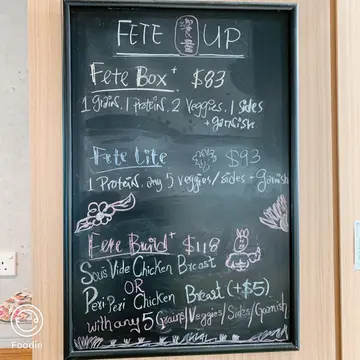 FETE UP
Fete Box+ $83
1 grain, 1 Protein, 2 Veggies, 1 Sides
+ garnish
Fete Lite $93
1 Protein, any 5 veggies/sides + Garnish
Fete Build+ $118
Sous Vide Chicken Breast
OR
Peri Peri Chicken Breast (+$5)
with any 5 Grains/Veggies/Sides/Garnish
Foodie